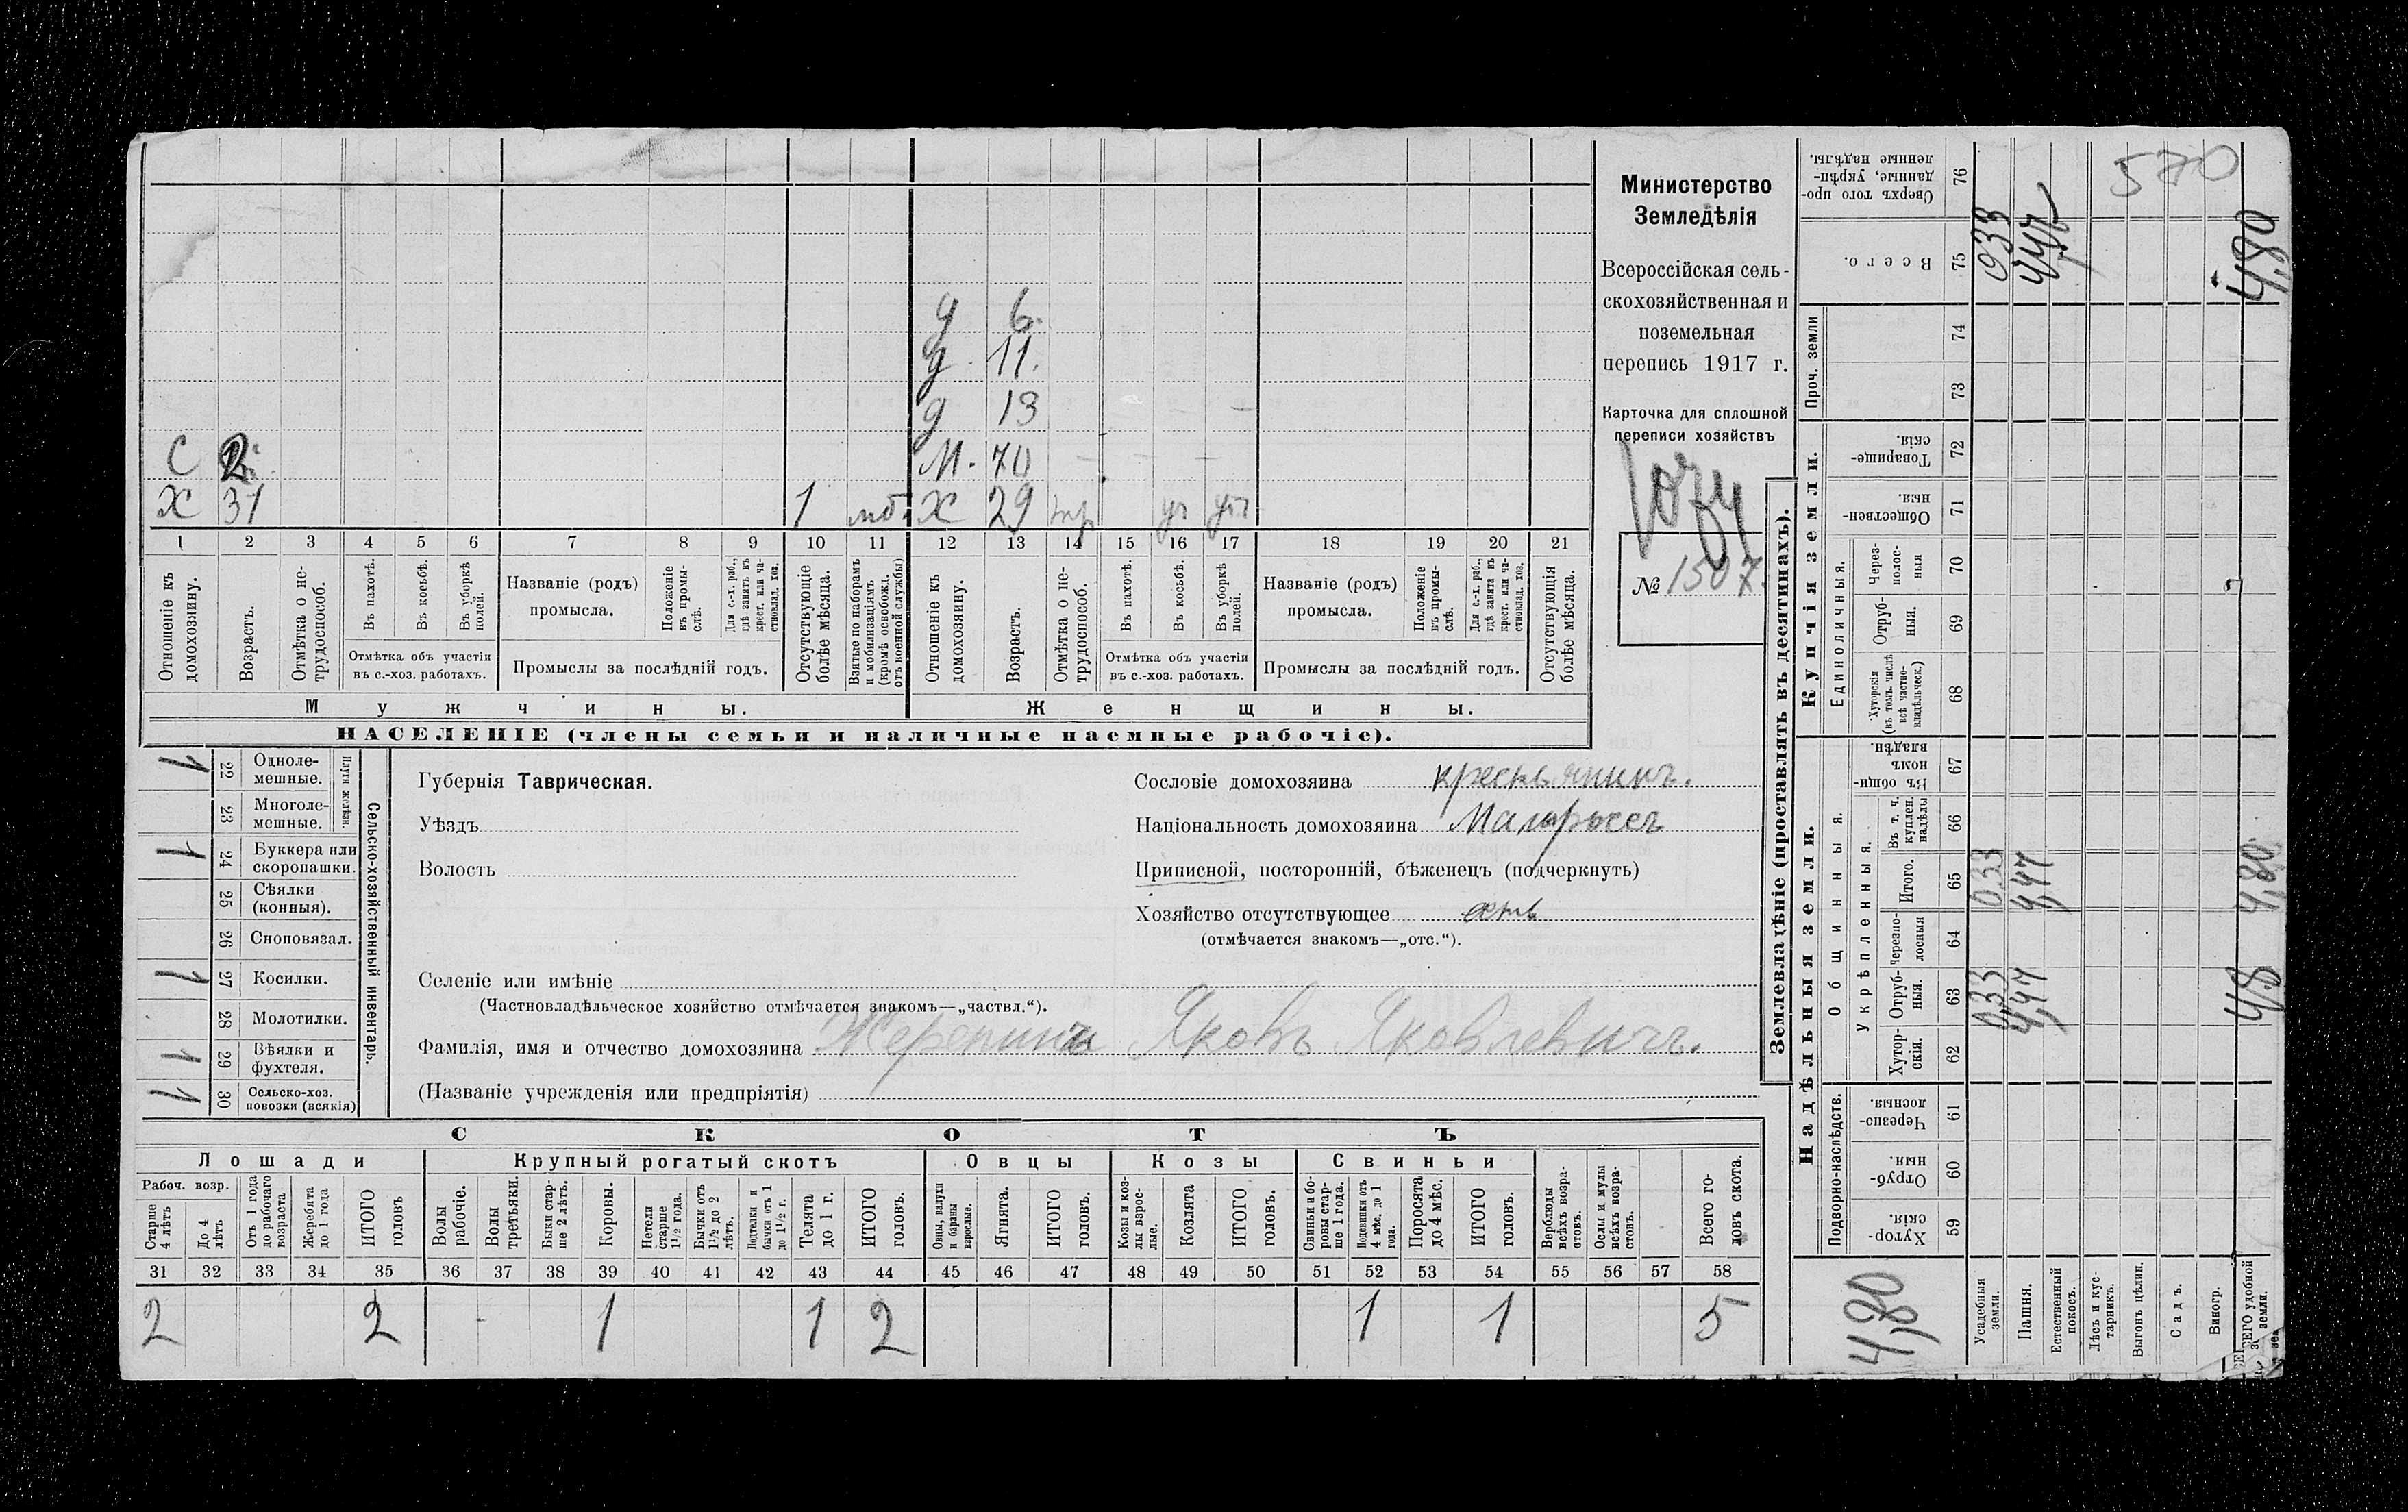 Министерство
Земледѣлія
Всероссійская сель-
скохозяйственная и
поземельная
перепись 1917 г.
Карточка для сплошной
переписи хозяйствъ
№ 1507.
д 6.
д 11.
д 13
С 2 М. 70
Х 31 1 мб. Х 29
1 2 3 4 5 6 7 8 9 10 11 12 13 14 15 16 17 18 19 20 21
Отношеніе къ домохозяину.
Возрастъ.
Отмѣтка о не-трудоспособ.
Въ пахотѣ.
Въ косьбѣ.
Въ уборкѣ полей.
Отмѣтка объ участіи
въ с.-хоз. работахъ.
Названіе (родъ)
промысла.
Положеніе въ промы-слѣ.
Для с.-х. раб., гдѣ занятъ въ крест. или ча-стновлад. хоз.
Промыслы за послѣдній годъ.
Отсутствующіе болѣе мѣсяца.
Взятые по наборамъ и мобилизаціямъ (кромѣ освобожд. отъ военной службы)
Отношеніе къ домохозяину.
Возрастъ.
Отмѣтка о не-трудоспособ.
Въ пахотѣ.
Въ косьбѣ.
Въ уборкѣ полей.
Отмѣтка объ участіи
въ с.-хоз. работахъ.
Названіе (родъ)
промысла.
Положеніе въ промы-слѣ.
Для с.-х. раб., гдѣ занята въ крест. или ча-стновлад. хоз.
Промыслы за послѣдній годъ.
Отсутствующія болѣе мѣсяца.
Мужчины. Женщины.
НАСЕЛЕНІЕ (члены семьи и наличные наемные рабочіе).
Сельско-хозяйственный инвентарь.
Плуги желѣзн.
1 22 Однолемешные.
23 Многолемешные.
1 24 Буккера или скоропашки.
25 Сѣялки (конныя).
26 Сноповязал.
1 27 Косилки.
28 Молотилки.
1 29 Вѣялки и фухтеля.
1 30 Сельско-хоз. повозки (всякія)
Губернія Таврическая.
Уѣздъ
Волость
Сословіе домохозяина крестьянинъ.
Національность домохозяина Малороссъ
Приписной, посторонній, бѣженецъ (подчеркнуть)
Хозяйство отсутствующее
(отмѣчается знакомъ—„отс.“).
Селеніе или имѣніе
(Частновладѣльческое хозяйство отмѣчается знакомъ—„частвл.“).
Фамилія, имя и отчество домохозяина Яковъ Яковлевичъ.
(Названіе учрежденія или предпріятія)
СКОТЪ
Лошади Крупный рогатый скотъ Овцы Козы Свиньи
Рабоч. возр.
Старше 4 лѣтъ
До 4 лѣтъ
Отъ 1 года до рабочаго возраста
Жеребята до 1 года
ИТОГО головъ
Волы рабочіе.
Волы третьяки.
Быки стар-ше 2 лѣтъ.
Коровы.
Нетели старше 1½ года.
Бычки отъ 1½ до 2 лѣтъ.
Подтелки и бычки отъ 1 до 1½ г.
Телята до 1 г.
ИТОГО головъ.
Овцы, валухи и бараны взрослые.
Ягнята.
ИТОГО головъ.
Козы и коз-лы взрос-лые.
Козлята
ИТОГО головъ.
Свиньи и бо-ровы стар-ше 1 года.
Подсвинки отъ 4 мѣс. до 1 года.
Поросята до 4 мѣс.
ИТОГО головъ.
Верблюды всѣхъ возра-стовъ.
Ослы и мулы всѣхъ возра-стовъ.
Всего го-ловъ скота.
31 32 33 34 35 36 37 38 39 40 41 42 43 44 45 46 47 48 49 50 51 52 53 54 55 56 57 58
2 2 1 1 2 1 1 5
Землевладѣніе (проставлять въ десятинахъ).
Надѣльныя земли. Купчія земли.
Проч. земли
Подворно-наслѣдств.
Общинныя.
Укрѣпленныя.
Единоличныя.
Хутор-скія. 59
Отруб-ныя. 60
Черезпо-лосныя. 61
Хутор-скія. 62
Отруб-ныя. 63
Черезпо-лосныя 64
Итого. 65
Въ т. ч. куплен. надѣлы 66
Въ общин-номъ владѣн. 67
Хуторскія (въ томъ числѣ всѣ частно-владѣльческ.) 68
Отруб-ныя. 69
Через-полос-ныя 70
Обществен-ныя. 71
Товарище-скія. 72
73
74
Всего. 75
Сверхъ того про-данные, укрѣп-ленные надѣлы. 76
Усадебныя земли.
0,33 0,33 0,33
Пашня.
4,47 4,47 4,47
Естественный покосъ.
Лѣсъ и кус-тарникъ.
Выгонъ цѣлин.
Садъ.
Виногр.
4,8 4,80 4,80
4,80
570